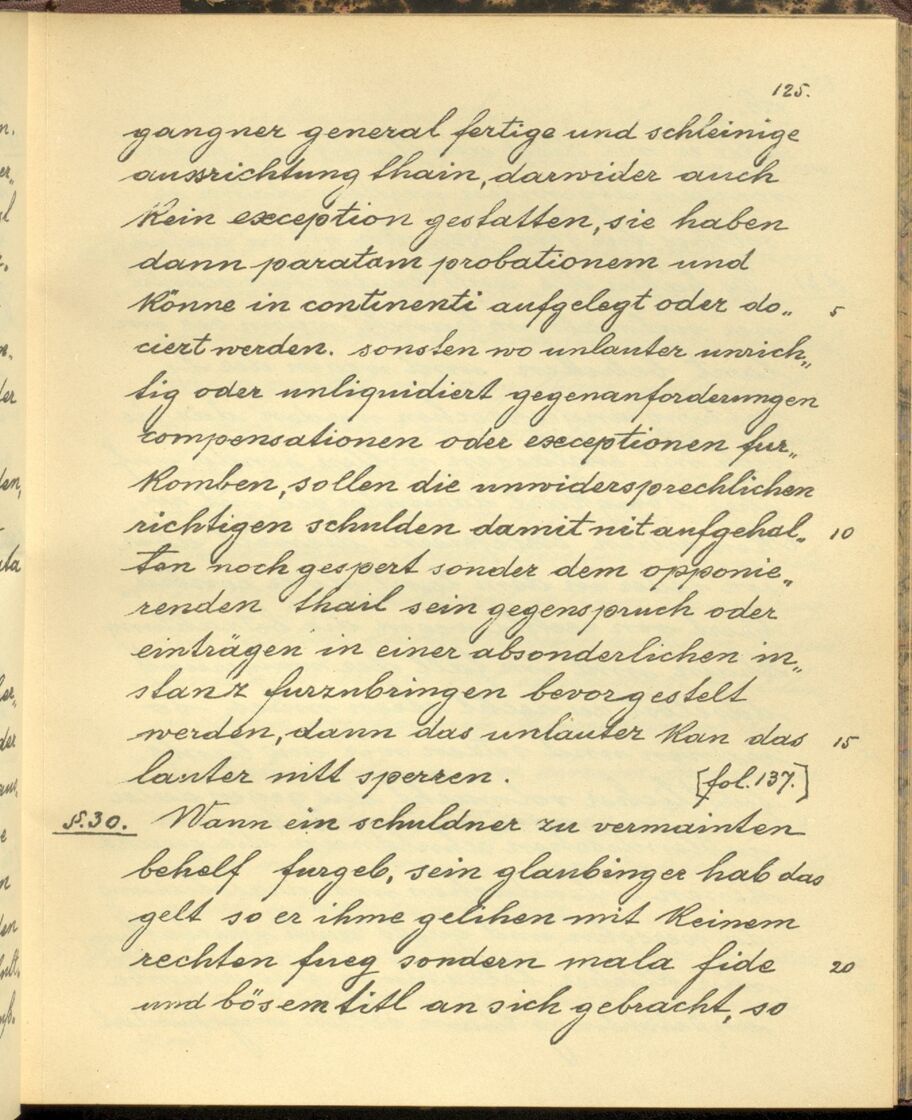 125.
gangner general fertige und schleinige
aussrichtung thain, darwider auch
kein exception gestatten, sie haben
dann paratam probationem und
könne in continenti aufgelegt oder do„ 5
ciert werden. sonsten wo unlauter unrich„
tig oder unliquidiert gegenanforderungen
compensationen oder exceptionen fur„
komben, sollen die unwidersprechlichen
richtigen schulden damit nit aufgehal„ 10
ten noch gespert sonder dem opponie„
renden thail sein gegenspruch oder
einträgen in einer absonderlichen in„
stanz furzubringen bevorgestelt
werden, dann das unlauter kan das 15
lauter nitt sperren. [fol. 137.]
§. 30. Wann ein schuldner zu vermainten
behelf furgeb, sein glaubinger hab das
gelt so er ihme gelihen mit keinem
rechten fueg sondern mala fide 20
und bösem titl an sich gebracht, so